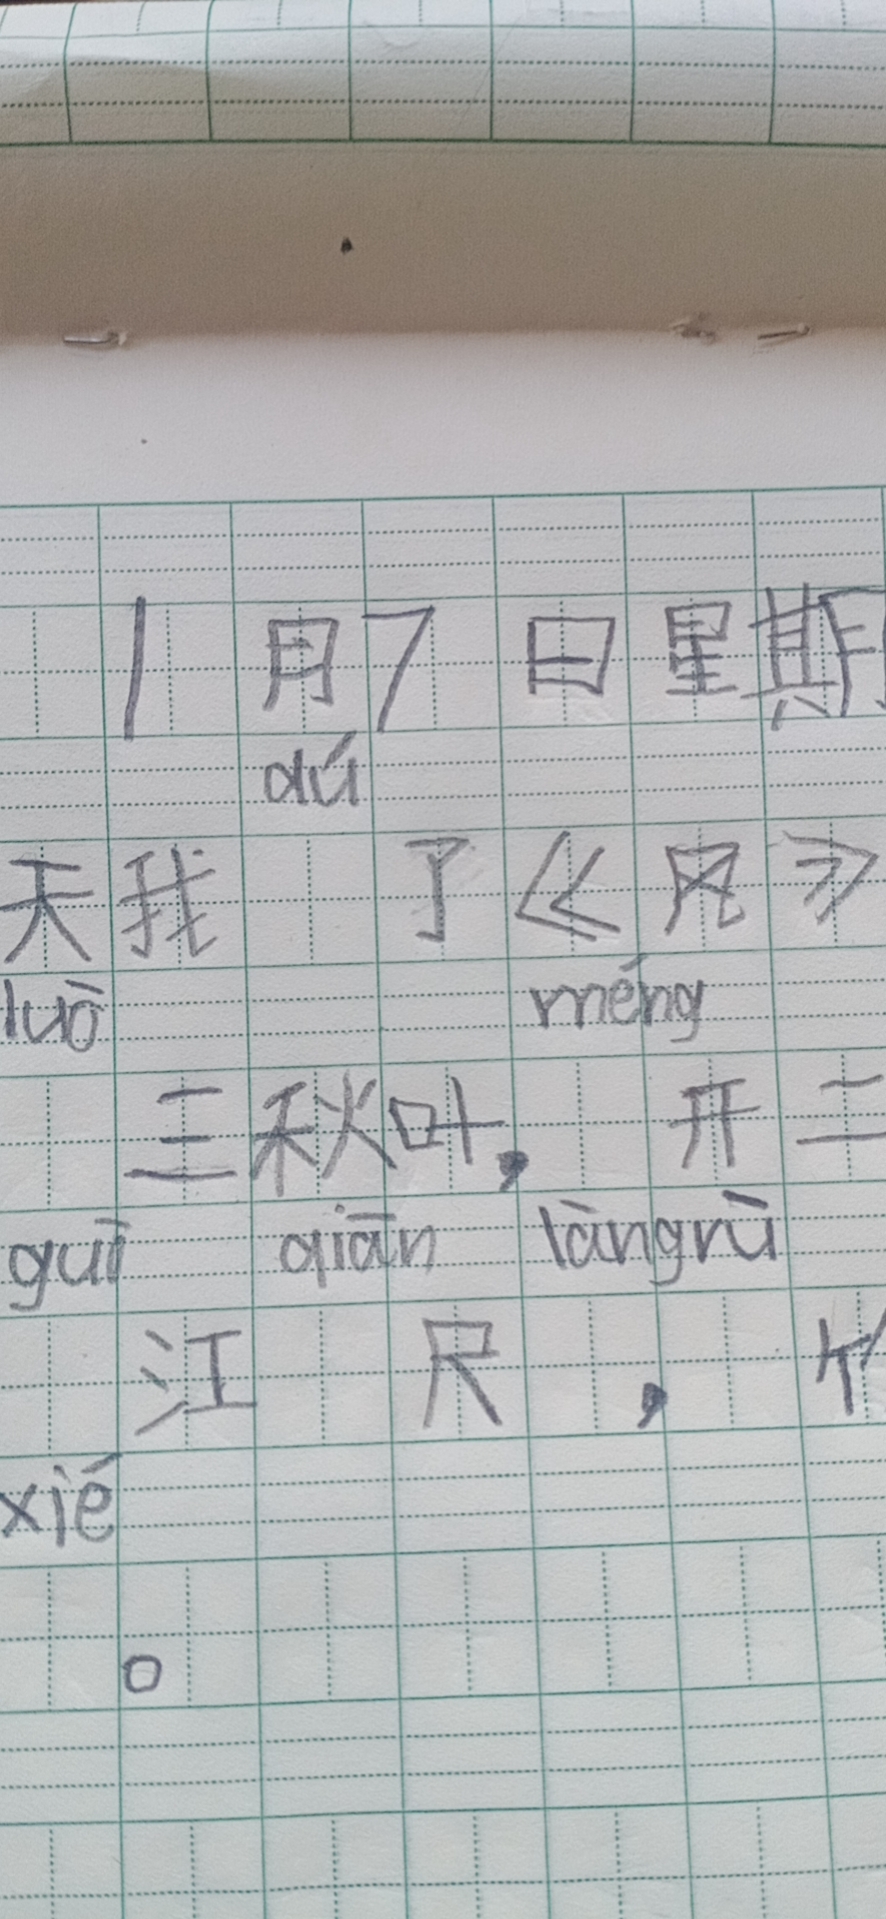 1月7日星期
dú
天我 了《风》
luò méng
三秋叶, 开二
guì qiān làngrù
江 尺 ,
xié
。